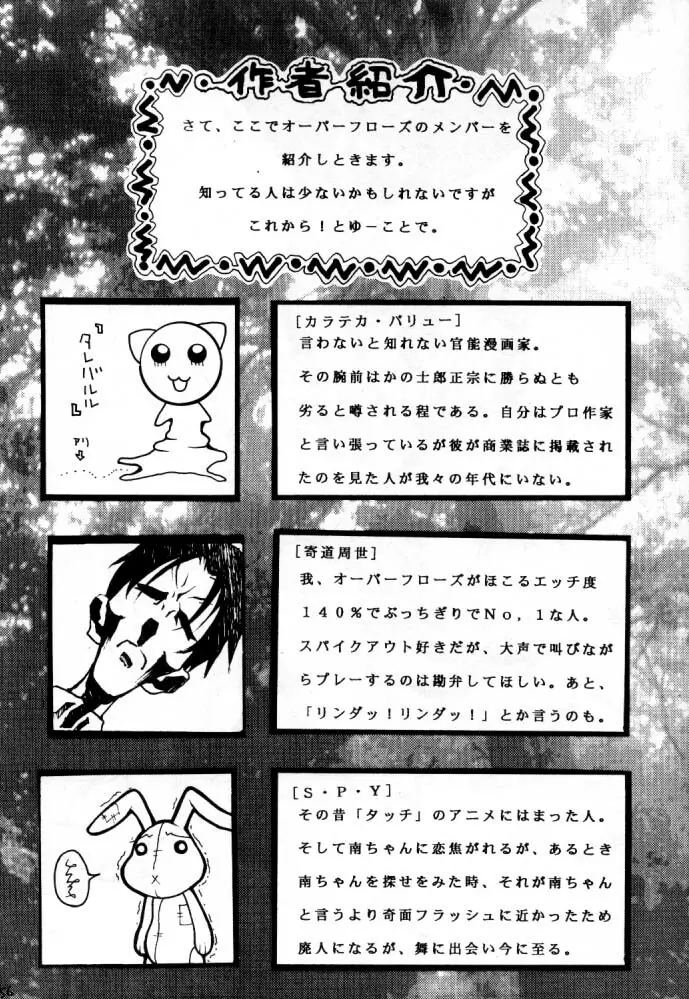 作者紹介
さて、ここでオーバーフローズのメンバーを
紹介しときます。
知ってる人は少ないかもしれないですが
これから!とゆーことで。
『タレバルル』
アリ
[カラテカ・バリュー]
言わないと知れない官能漫画家。
その腕前はかの士郎正宗に勝らぬとも
劣ると噂される程である。自分はプロ作家
と言い張っているが彼が商業誌に掲載され
たのを見た人が我々の年代にいない。
[寄道周世]
我、オーバーフローズがほこるエッチ度
140%でぶっちぎりでNo,1な人。
スパイクアウト好きだが、大声で叫びなが
らプレーするのは勘弁してほしい。あと、
「リンダッ!リンダッ!」とか言うのも。
[S・P・Y]
その昔「タッチ」のアニメにはまった人。
そして南ちゃんに恋焦がれるが、あるとき
南ちゃんを探せをみた時、それが南ちゃん
と言うより奇面フラッシュに近かったため
廃人になるが、舞に出会い今に至る。
56